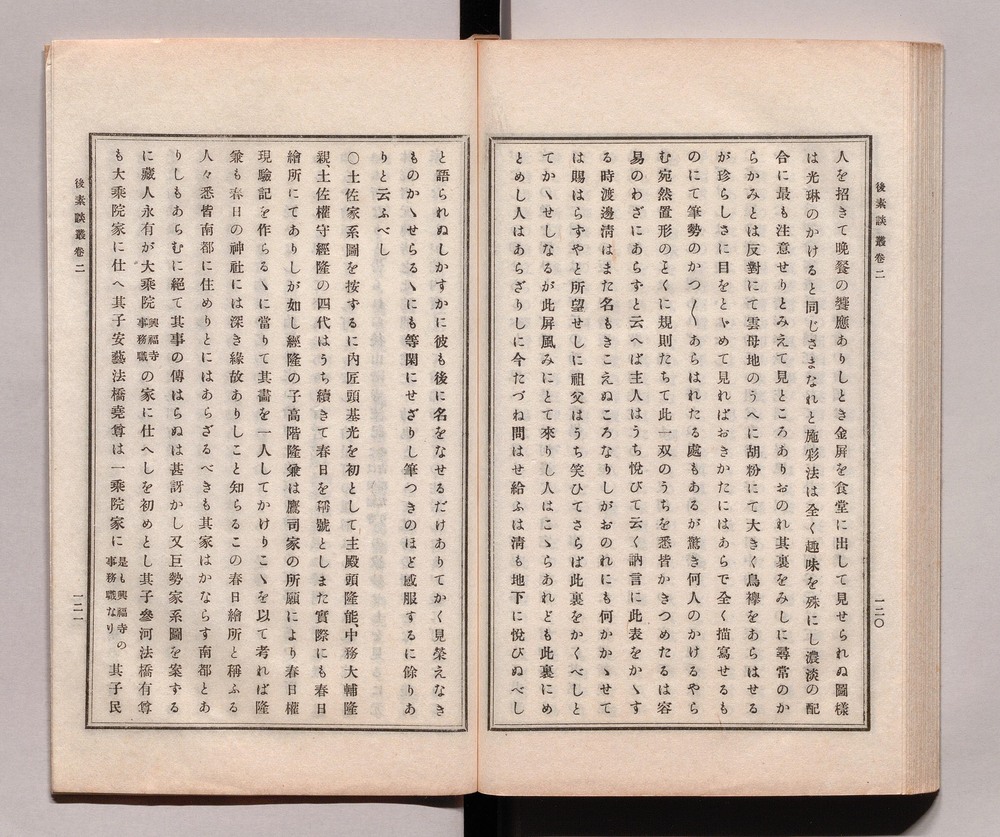 後素談叢卷二
一二〇
人を招きて晩餐の饗應ありしとき金屏を食堂に出して見せられぬ圖樣
は光琳のかけると同じさまなれと施彩法は全く趣味を殊にし濃淡の配
合に最も注意せりとみえて見ところありおのれ其裏をみしに尋常のか
らかみとは反對にて雲母地のうへに胡粉にて大きく鳥襷をあらはせる
が珍らしさに目をとゞめて見ればおきかたにはあらで全く描寫せるも
のにて筆勢のかつ〳〵あらはれたる處もあるが驚き何人のかけるやら
む宛然置形のとくに規則たちて此一双のうちを悉皆かきつめたるは容
易のわざにあらすと云へば主人はうち悦びて云く訥言に此表をかゝす
る時渡邊淸はまた名もきこえぬころなりしがおのれにも何かかゝせて
は賜はらすやと所望せしに祖父はうち笑ひてさらば此裏をかくべしと
てかゝせしなるが此屏風みにとて來りし人はこゝらあれども此裏にめ
とめし人はあらざりしに今たづね問はせ給ふは淸も地下に悦びぬべし
と語られぬしかすかに彼も後に名をなせるだけありてかく見榮えなき
ものかゝせらるゝにも等閑にせざりし筆つきのほど感服するに餘りあ
りと云ふべし
〇土佐家系圖を按するに內匠頭基光を初として主殿頭隆能、中務大輔隆
親、土佐權守經隆の四代はうち續きて春日を稱號としまた實際にも春日
繪所にてありしが如し經隆の子高階隆兼は鷹司家の所願により春日權
現驗記を作らるゝに當りて其畵を一人してかけりこゝを以て考れば隆
兼も春日の神社には深き緣故ありしこと知らるこの春日繪所と稱ふる
人々悉皆南都に住めりとにはあらざるべきも其家はかならす南都とあ
りしもあらむに絕て其事の傳はらぬは甚訝かし又巨勢家系圖を案する
に藏人永有が大乘院興福寺事務職の家に仕へしを初めとし其子參河法橋有尊
も大乘院家に仕へ其子安藝法橋堯尊は一乘院家に是も興福寺の事務職なり其子民
後素談叢卷二
一二一